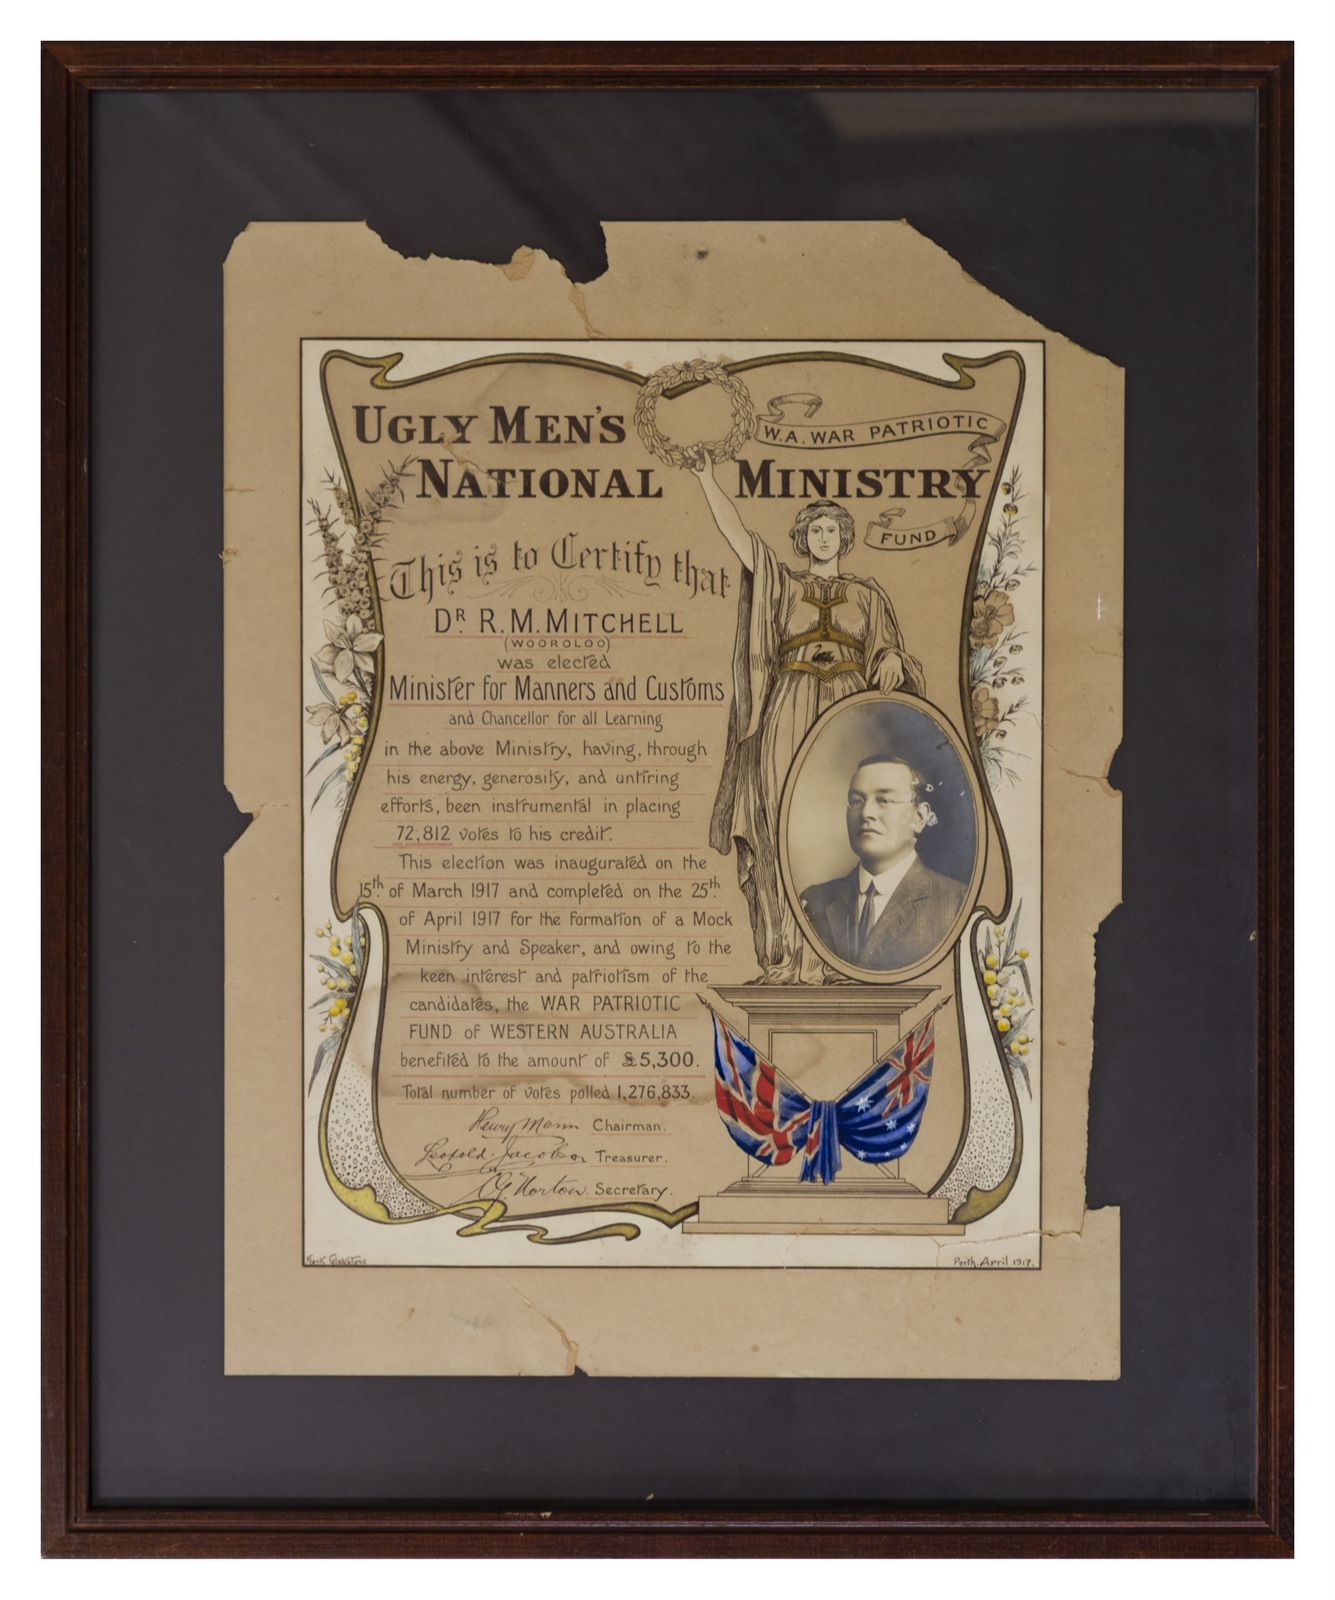 UGLY MEN'S
W.A. WAR PATRIOTIC
NATIONAL MINISTRY
FUND
This is to Certify that
DR. R. M. MITCHELL
(WOOROLOO)
was elected
Minister for Manners and Customs
and Chancellor for all Learning
in the above Ministry, having, through
his energy, generosity, and untiring
efforts, been instrumental in placing
72,812 votes to his credit.
This election was inaugurated on the
15th. of March 1917 and completed on the 25th.
of April 1917 for the formation of a Mock
Ministry and Speaker, and owing to the
keen interest and patriotism of the
candidates, the WAR PATRIOTIC
FUND of WESTERN AUSTRALIA
benefited to the amount of £5,300.
Total number of votes polled 1,276,833.
Henry Mann Chairman.
Leopold Jacobson Treasurer.
Horton. Secretary.
Gladstone
Perth. April 1917.